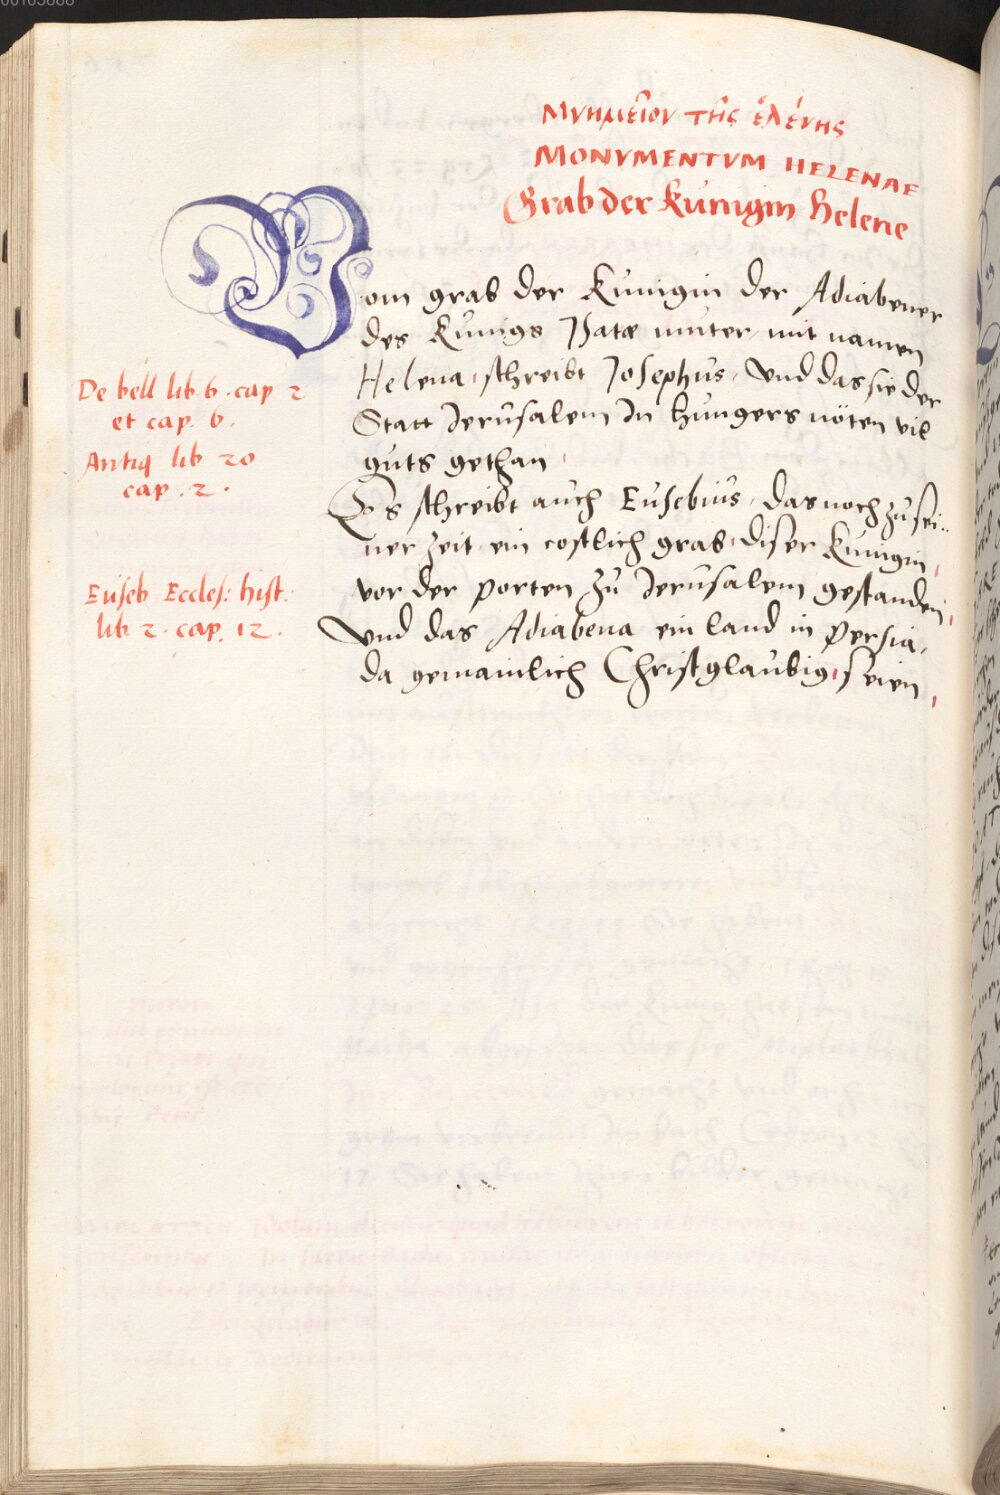 Μνημεῖον τῆς ἑλένης
MONVMENTVM HELENAE
Grab der Kunigin Helene
Vom grab der Kunigin der Adiabener
des Kunigs Izatæ muter, mit namen
Helena, schreibt Josephus, Vnd das sie der
Statt Jerusalem In hungers nöten vil
guts gethan
Es schreibt auch Eusebius, das noch zu sei-
ner zeit ein costlich grab diser Kunigin,
vor der porten zu Jerusalem gestanden,
Vnd das Adiabena ein land in Persia,
da gemainlich Christglaubig seien,
De bell lib 6. cap 2
et cap. 6.
Antiq lib 20
cap. 2.
Euseb Eccles: hist:
lib. 2. cap. 12.